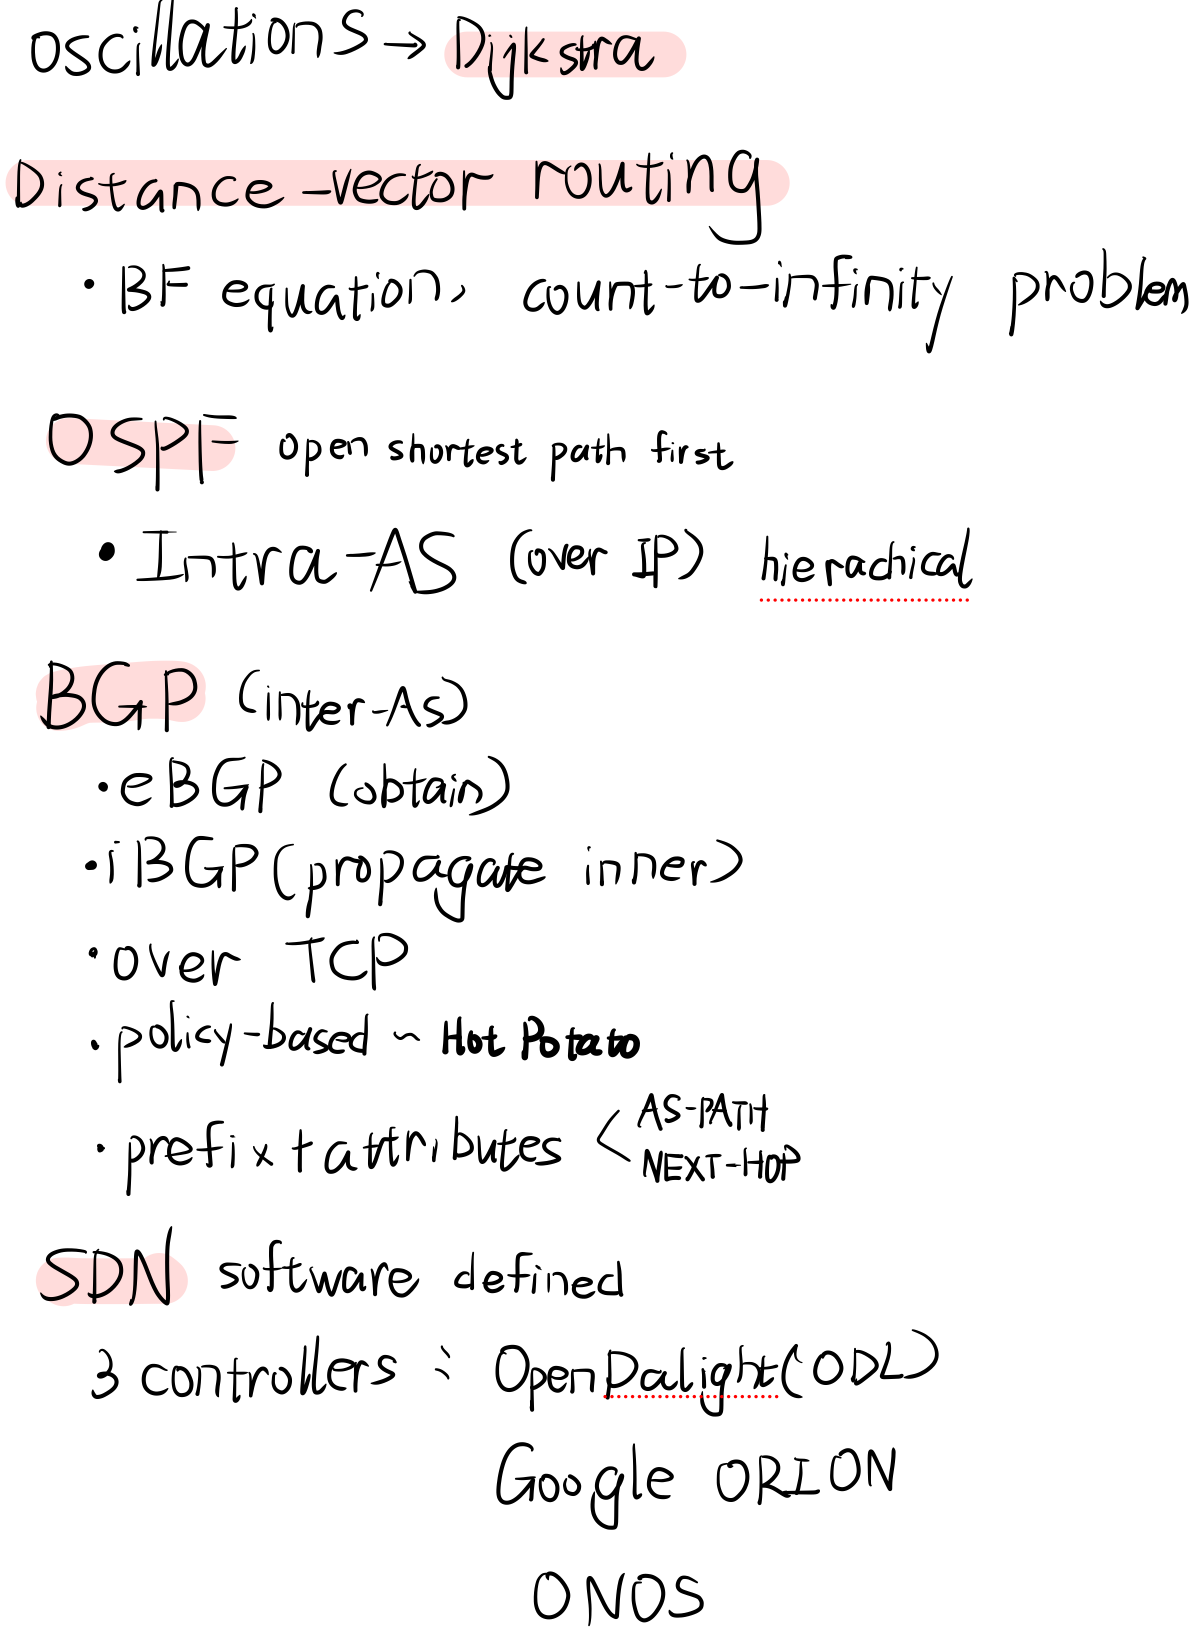 oscillations → Dijkstra
Distance-vector routing
· BF equation, count-to-infinity problem
OSPF open shortest path first
• Intra-AS (over IP) hierachical
BGP (inter-As)
· eBGP (obtain)
· iBGP (propagate inner)
· over TCP
· policy-based ~ Hot Potato
· prefix + attributes < AS-PATH
NEXT-HOP
SDN software defined
3 controllers : OpenDalight (ODL)
Google ORION
ONOS